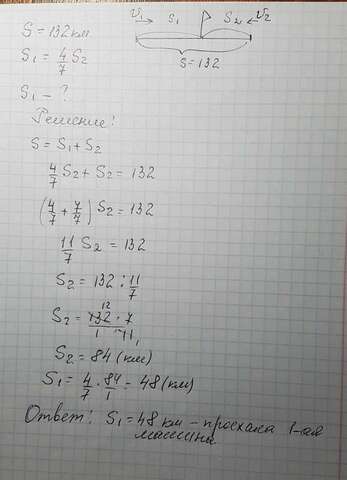 S = 132 км
S₁ = 4/7 S₂
S₁ – ?
V₁ S₁ S₂ V₂
S = 132
Решение:
S = S₁ + S₂
4/7 S₂ + S₂ = 132
(4/7 + 7/7) S₂ = 132
11/7 S₂ = 132
S₂ = 132 : 11/7
S₂ = 132 · 7 / 1 · 11
12 1
S₂ = 84 (км)
S₁ = 4/7 · 84/1 = 48 (км)
Ответ: S₁ = 48 км – проехала 1-ая
машина